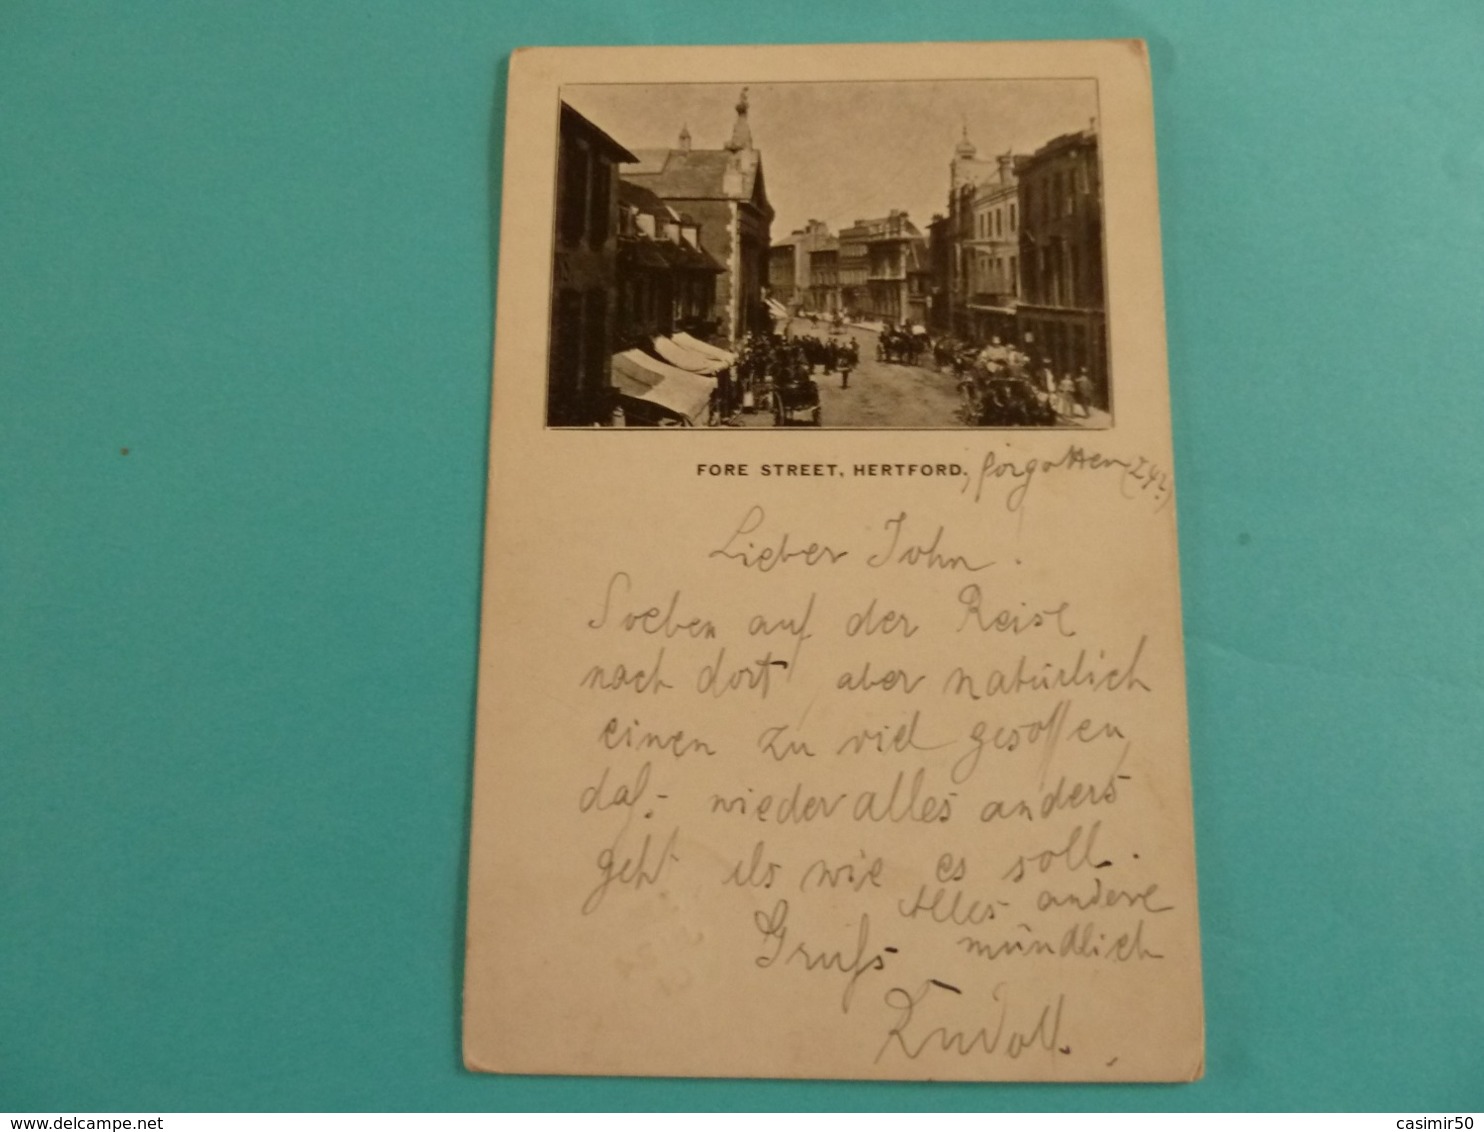 FORE STREET, HERTFORD. forgotten
Lieber John.
Soeben auf der Reise
nach dort, aber natürlich
einen zu viel gesoffen,
daß wieder alles anders
geht als wie es soll.
Alles andere
Gruß mündlich
Rudolf.
delcampe.net
casimir50